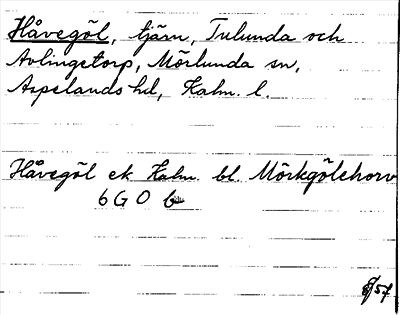 Håvegöl, tjärn, Tulunda och
Avlingetorp, Mörlunda sn,
Aspelands hd, Kalm. l.
Håvegöl ek. Kalm. bl. Mörkgölehorv
6 G 0 b
/57